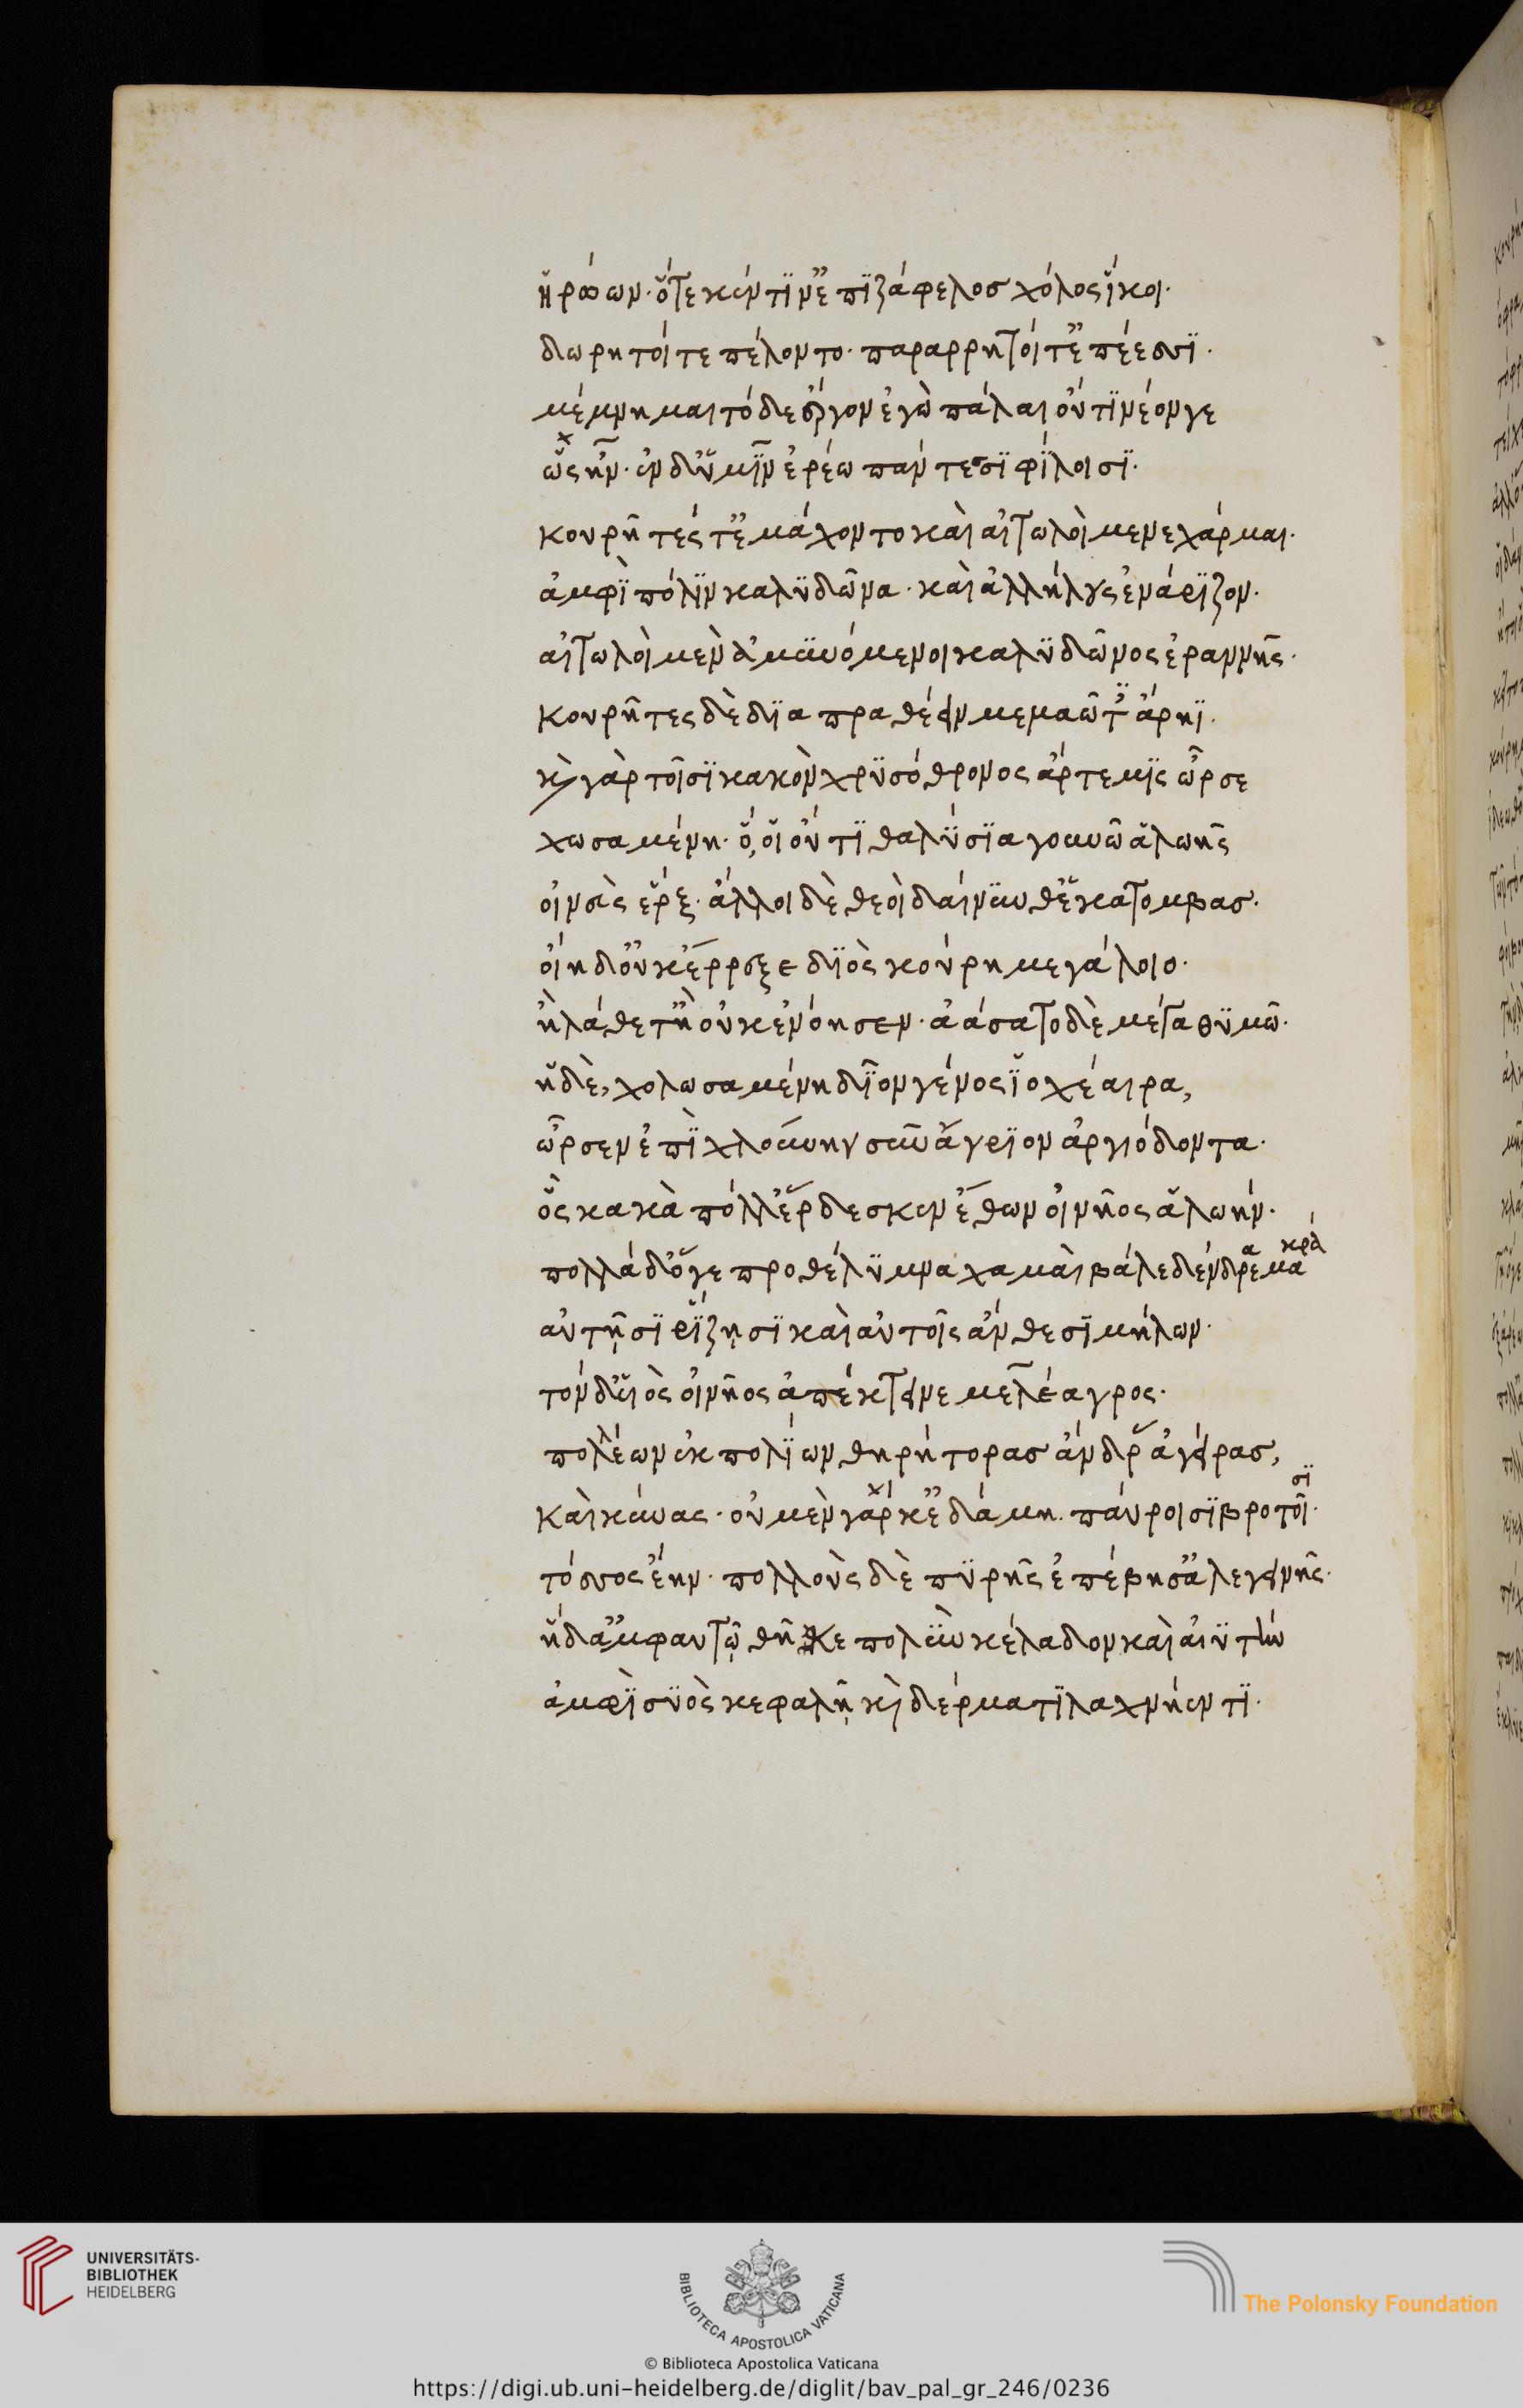 ἡρώων· ὅτε κέν τιν' ἐπιζάφελος χόλος ἵκοι·
δωρητοί τε πέλοντο· παραρρητοί τ' ἐπέεσσι·
μέμνημαι τόδε ἔργον ἐγὼ πάλαι οὔτι νέον γε
ὡς ἦν· ἐν δ' ὑμῖν ἐρέω πάντεσι φίλοισι·
κουρῆτές τ' ἐμάχοντο καὶ αἰτωλοὶ μενεχάρμαι·
ἀμφὶ πόλιν καλυδῶνα· καὶ ἀλλήλους ἐνάριζον·
αἰτωλοὶ μὲν ἀμυνόμενοι καλυδῶνος ἐραννῆς·
κουρῆτες δὲ διαπραθέειν μεμαῶτ' ἄρηι·
καὶ γὰρ τοῖσι κακὸν χρυσόθρονος ἄρτεμις ὦρσε
χωσαμένη· ὅ, οἱ οὔτι θαλύσια γουνῷ ἁλωῆς
οἰνεὺς ἔρξ· ἄλλοι δὲ θεοὶ δαίνυνθ' ἑκατόμβας·
οἴη δ' οὐκ ἔρρεξε διὸς κούρη μεγάλοιο·
ἢ λάθετ' ἢ οὐκ ἐνόησεν· ἀάσατο δὲ μέγα θυμῷ·
ἡ δὲ, χολωσαμένη δῖον γένος ἰοχέαιρα,
ὦρσεν ἐπὶ χλούνην σῦν ἄγριον ἀργιόδοντα·
ὃς κακὰ πόλλ' ἔρδεσκεν ἔθων οἰνῆος ἁλωήν·
πολλὰ δ' ὅγε προθέλυμνα χαμαὶ βάλε δένδρεα μακρὰ
αὐτῇσι ῥίζῃσι καὶ αὐτοῖς ἄνθεσι μήλων·
τὸν δ' υἱὸς οἰνῆος ἀπέκτεινε μελέαγρος·
πολλέων ἐκ πολίων θηρήτορας ἄνδρας ἀγείρας,
καὶ κύνας· οὐ μὲν γάρ κ' ἐδάμη παύροισι βροτοῖσι·
τόσσος ἔην· πολλοὺς δὲ πυρῆς ἐπέβησ' ἀλεγεινῆς·
ἡ δ' ἀμφ' αὐτῷ θῆκε πολὺν κέλαδον καὶ ἀυτὴν
ἀμφὶ συὸς κεφαλῇ καὶ δέρματι λαχνήεντι·
UNIVERSITÄTS-
BIBLIOTHEK
HEIDELBERG
BIBLIOTECA APOSTOLICA VATICANA
The Polonsky Foundation
© Biblioteca Apostolica Vaticana
https://digi.ub.uni-heidelberg.de/diglit/bav_pal_gr_246/0236